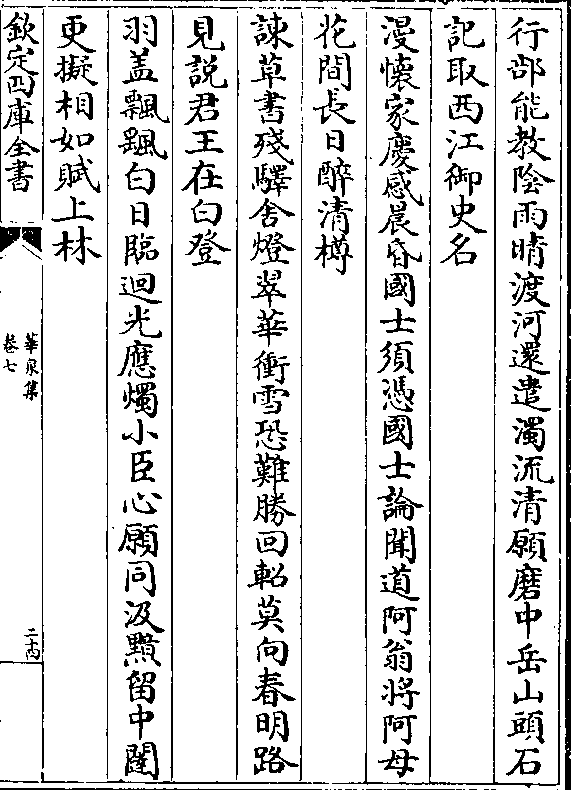 行部能教陰雨晴渡河還遣濁流清願磨中岳山頭石
記取西江御史名
漫懷家慶感晨昏國士須憑國士論聞道阿翁將阿母
花間長日醉清樽
諫草書殘驛舍燈翠華衝雪恐難勝回軺莫向春明路
見說君王在白登
羽盖飄飄白日臨迴光應燭小臣心願同汲黯留中闥
更擬相如賦上林
欽定四庫全書
華泉集
卷七